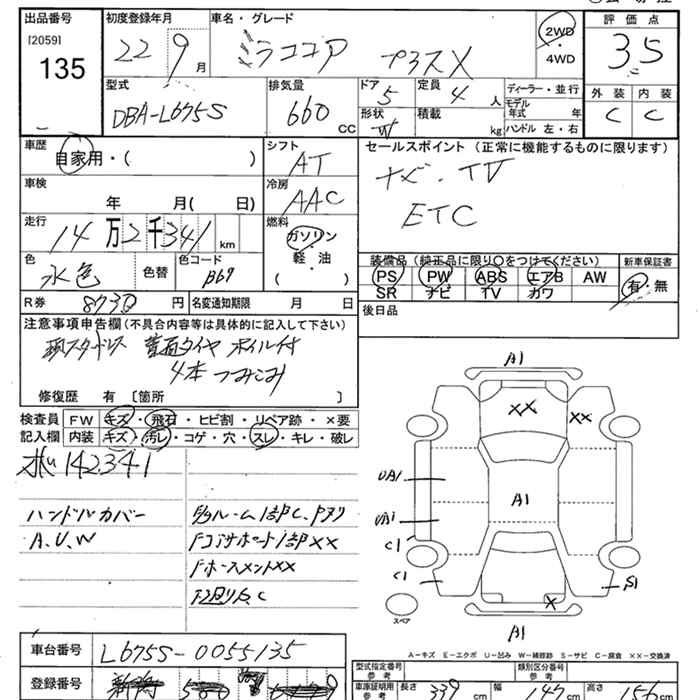 出品番号 初度登録年月 車名・グレード 評価点
[2059]
135 22 9月 ミラココア プラスX 2WD・4WD 3.5
型式 排気量 ドア 定員 ディーラー・並行 外装 内装
DBA-L675S 660 CC 5 4人 モデル年式 年 C C
形状 W 積載 kg ハンドル 左・右
車歴 シフト セールスポイント(正常に機能するものに限ります)
自家用・( ) AT ナビ・TV
車検 冷房
年 月( 日) AAC ETC
走行 燃料
14万2千341km ガソリン
軽・油
( )
色 色コード 装備品(純正品に限り○をつけてください) 新車保証書
水色 色替 B69 PS PW ABS エアB AW 有・無
SR ナビ TV カワ
R券 8730円 名変通知期限 月 日 後日品
注意事項申告欄(不具合内容等は具体的に記入して下さい)
タイヤ ホイル付
4本 つみこみ
修復歴 有 [箇所 ]
検査員 FW キズ・飛石・ヒビ割・リペア跡・×要
記入欄 内装 キズ・汚レ・コゲ・穴・スレ・キレ・破レ
142341
ハンドルカバー
A、U、W
A1
××
××
UA1
A1
UA1
C1
C1
S1
×
スペア
A1
A-キズ E-エクボ U-凹み W-補修跡 S-サビ C-腐食 ××-交換済
車台番号 L675S-0055135
登録番号
型式指定番号 参考 類別区分番号 参考
車庫証明用 参考 長さ 339cm 幅 147cm 高さ cm